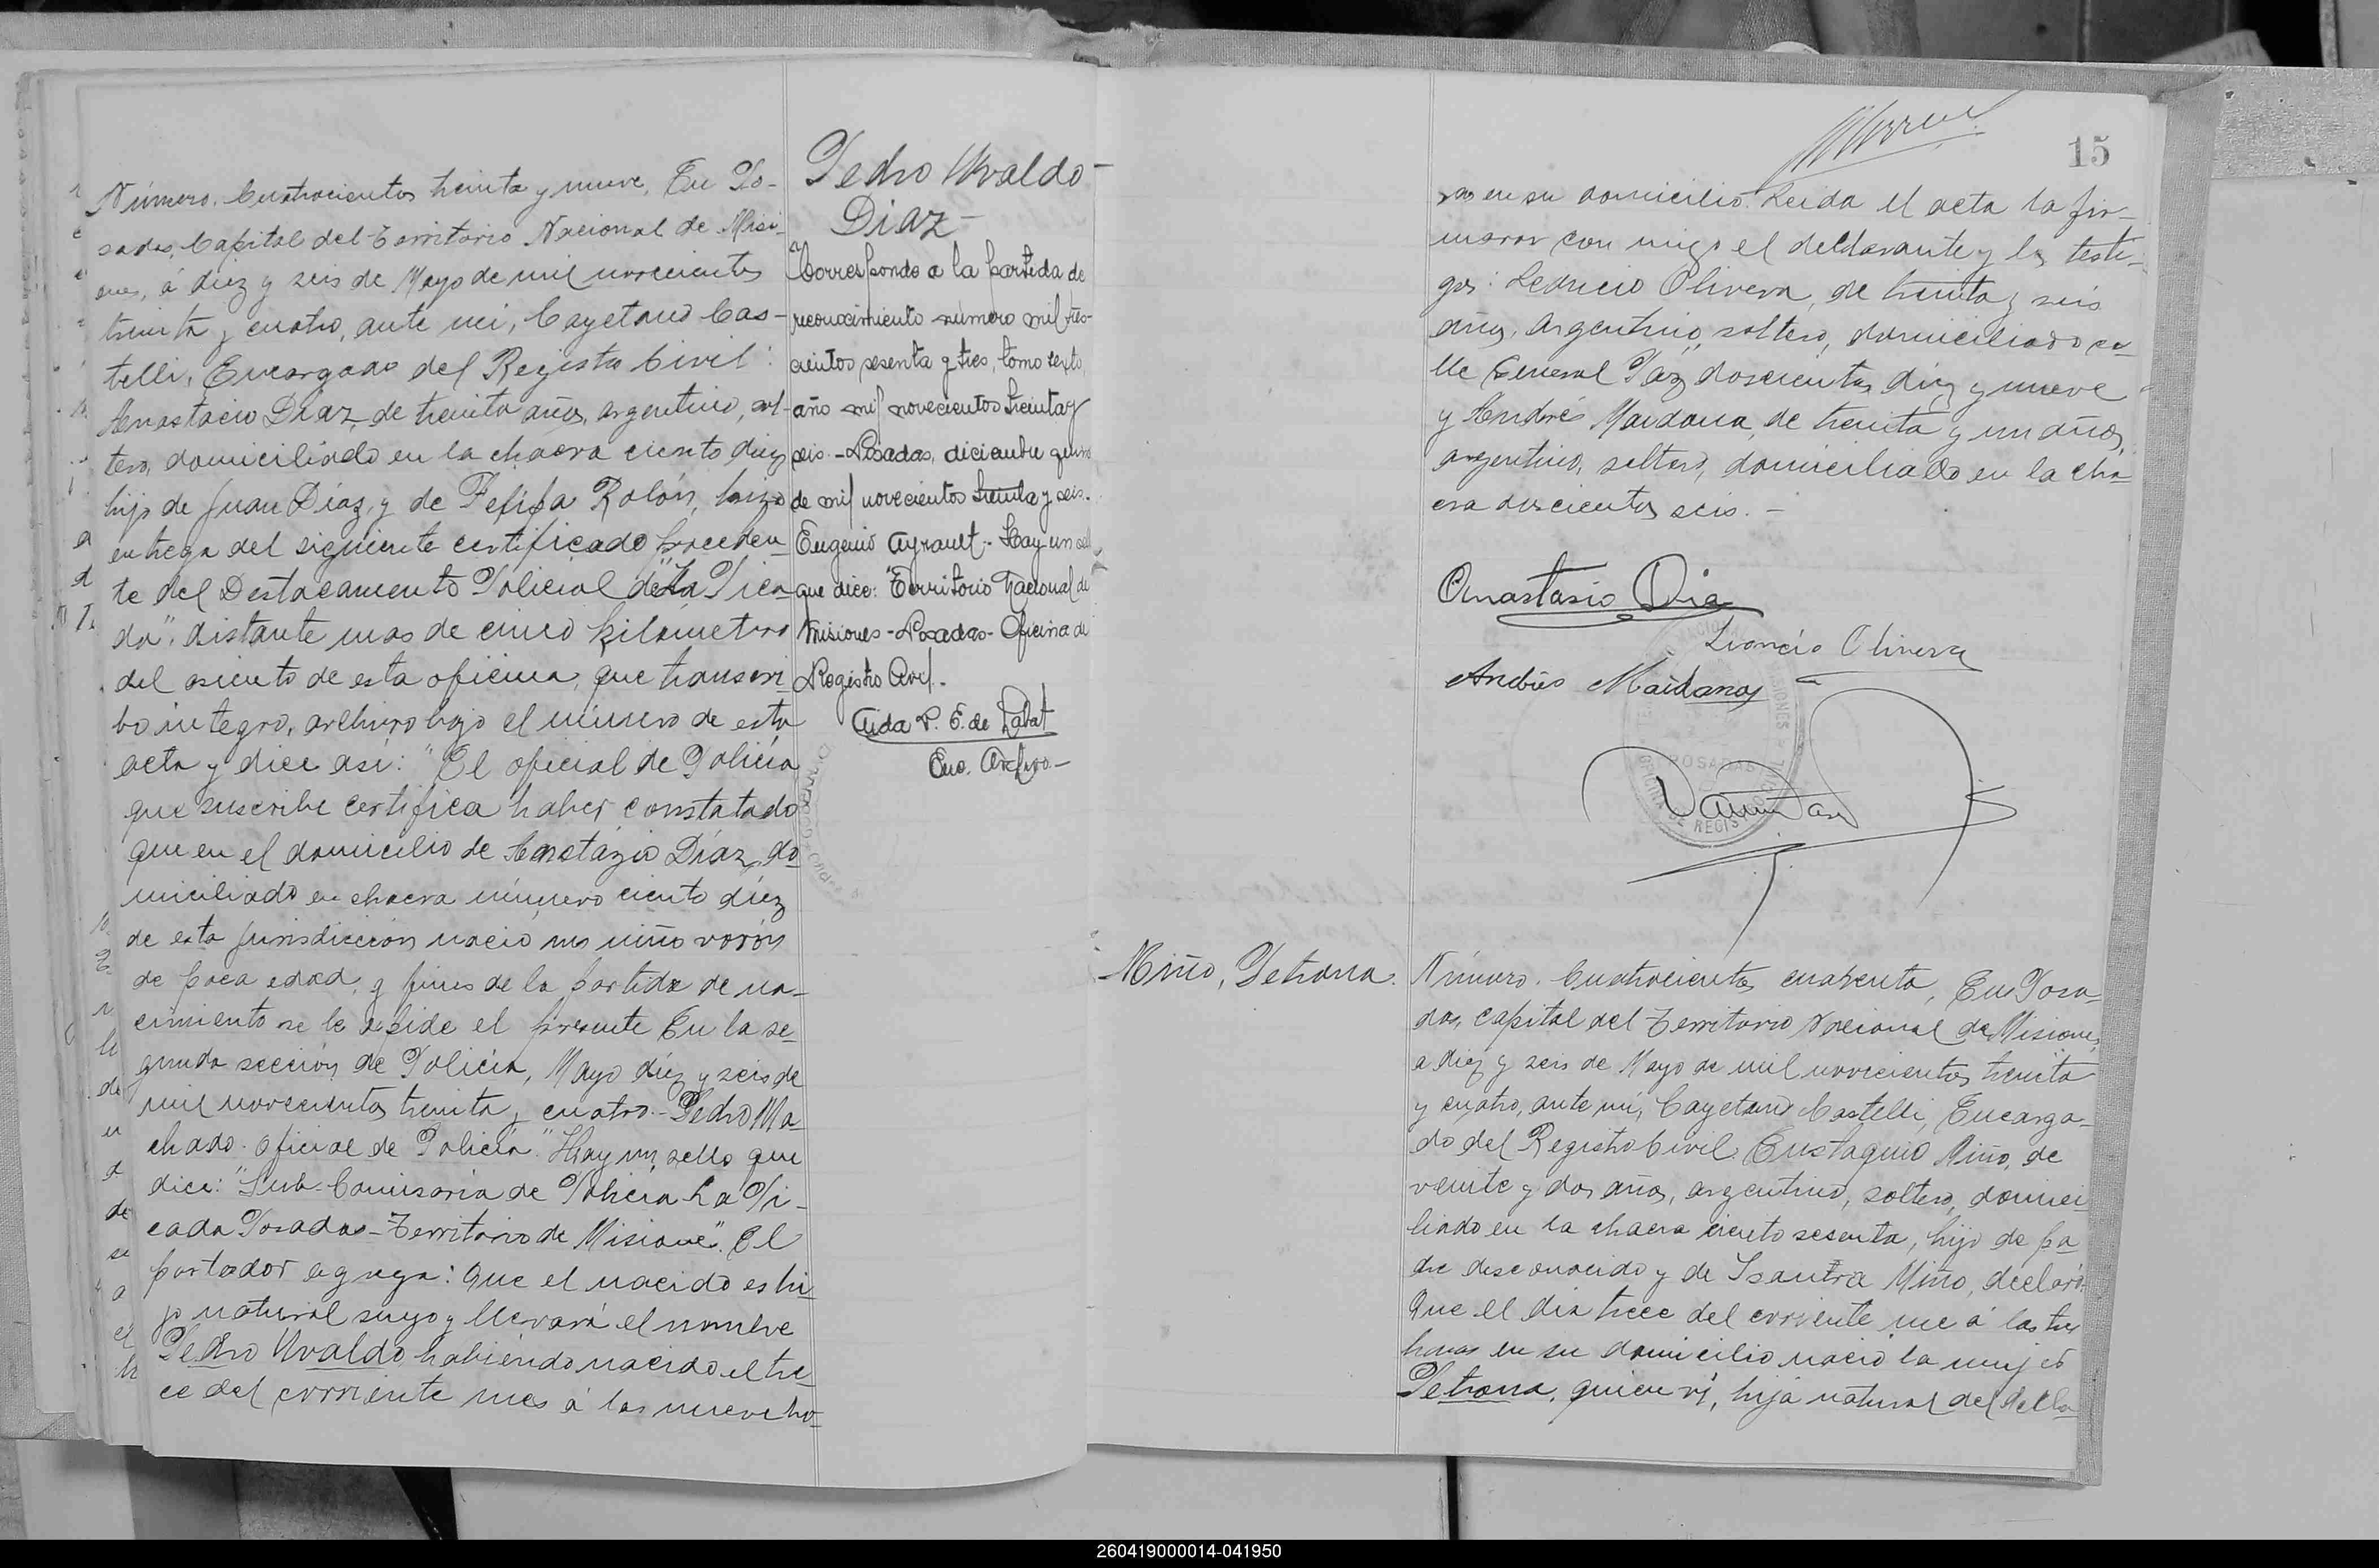 Número. Cuatrocientos treinta y nueve, En Po-
sadas, Capital del Territorio Nacional de Misi-
ones, á diez y seis de Mayo de mil novecientos
treinta y cuatro, ante mi, Cayetano Cas-
telli, Encargado del Registro Civil:
Anastacio Díaz, de treinta años, argentino, sol-
tero, domiciliado en la chacra ciento diez
hijo de Juan Díaz, y de Felipa Rolón, hizo
entrega del siguiente certificado proceden-
te del Destacamento Policial de "La Pica-
da", distante mas de cinco kilometros
del asiento de esta oficina, que transcri-
bo integro, archivo bajo el número de esta
acta y dice así: "El oficial de Policía
que suscribe certifica haber constatado
que en el domicilio de Anastázio Díaz, do
miciliado en chacra número ciento diez
de esta Jurisdicción nació un niño varón
de poca edad, y fines de la partida de na-
cimiento se le expide el presente En la se-
gunda sección de Policía, Mayo diez y seis de
mil novecientos treinta y cuatro.- Pedro Ma-
chado. Oficial de Policía." Hay un sello que
dice: "Sub-Comisaría de Policía La Pi-
cada Posadas-Territorio de Misiones". El
portador agrega: Que el nacido es hi-
jo natural suyo y llevará el nombre
Pedro Uvaldo, habiendo nacido el tre-
ce del corriente mes á las nueve ho-
Pedro Uvaldo-
Diaz-
Corresponde a la partida de
reconocimiento número mil tres-
cientos sesenta y tres, tomo sexto,
año mil novecientos treinta y
seis.- Posadas, diciembre
de mil novecientos treinta y seis.
Eugenio Ayrault.- Hay un
que dice: "Territorio Nacional de
Misiones-Posadas-Oficina de
Registro Civil.
Aida P. E. de Labat
Enc. Archivo.-
15
ras en su domicilio. Leida el acta la fir-
maron con migo el declarante y los testi-
gos: Leoncio Olivera, de treinta y seis
años, argentino, soltero, domiciliado ca-
lle General Paz doscientos diez y nueve
y Andrés Maidana, de treinta y un años,
argentino, soltero, domiciliado en la cha-
cra doscientos seis.-
Anastasio Dia
Leoncio Olivera
Andrés Maidana
POSADAS
Miño, Petrona.
Número. Cuatrocientos cuarenta, En Posa-
das, capital del Territorio Nacional de Misiones,
a diez y seis de Mayo de mil novecientos treinta
y cuatro, ante mi, Cayetano Castelli, Encarga-
do del Registro Civil. Eustaquio Miño, de
veinte y dos años, argentino, soltero, domici
liado en la chacra ciento sesenta, hijo de pa
dre desconocido y de Isantra Miño, declaró:
Que el dia trece del corriente mes á las tres
horas en su domicilio nació la mujer
Petrona, quien vi, hija natural del decla
260419000014-041950